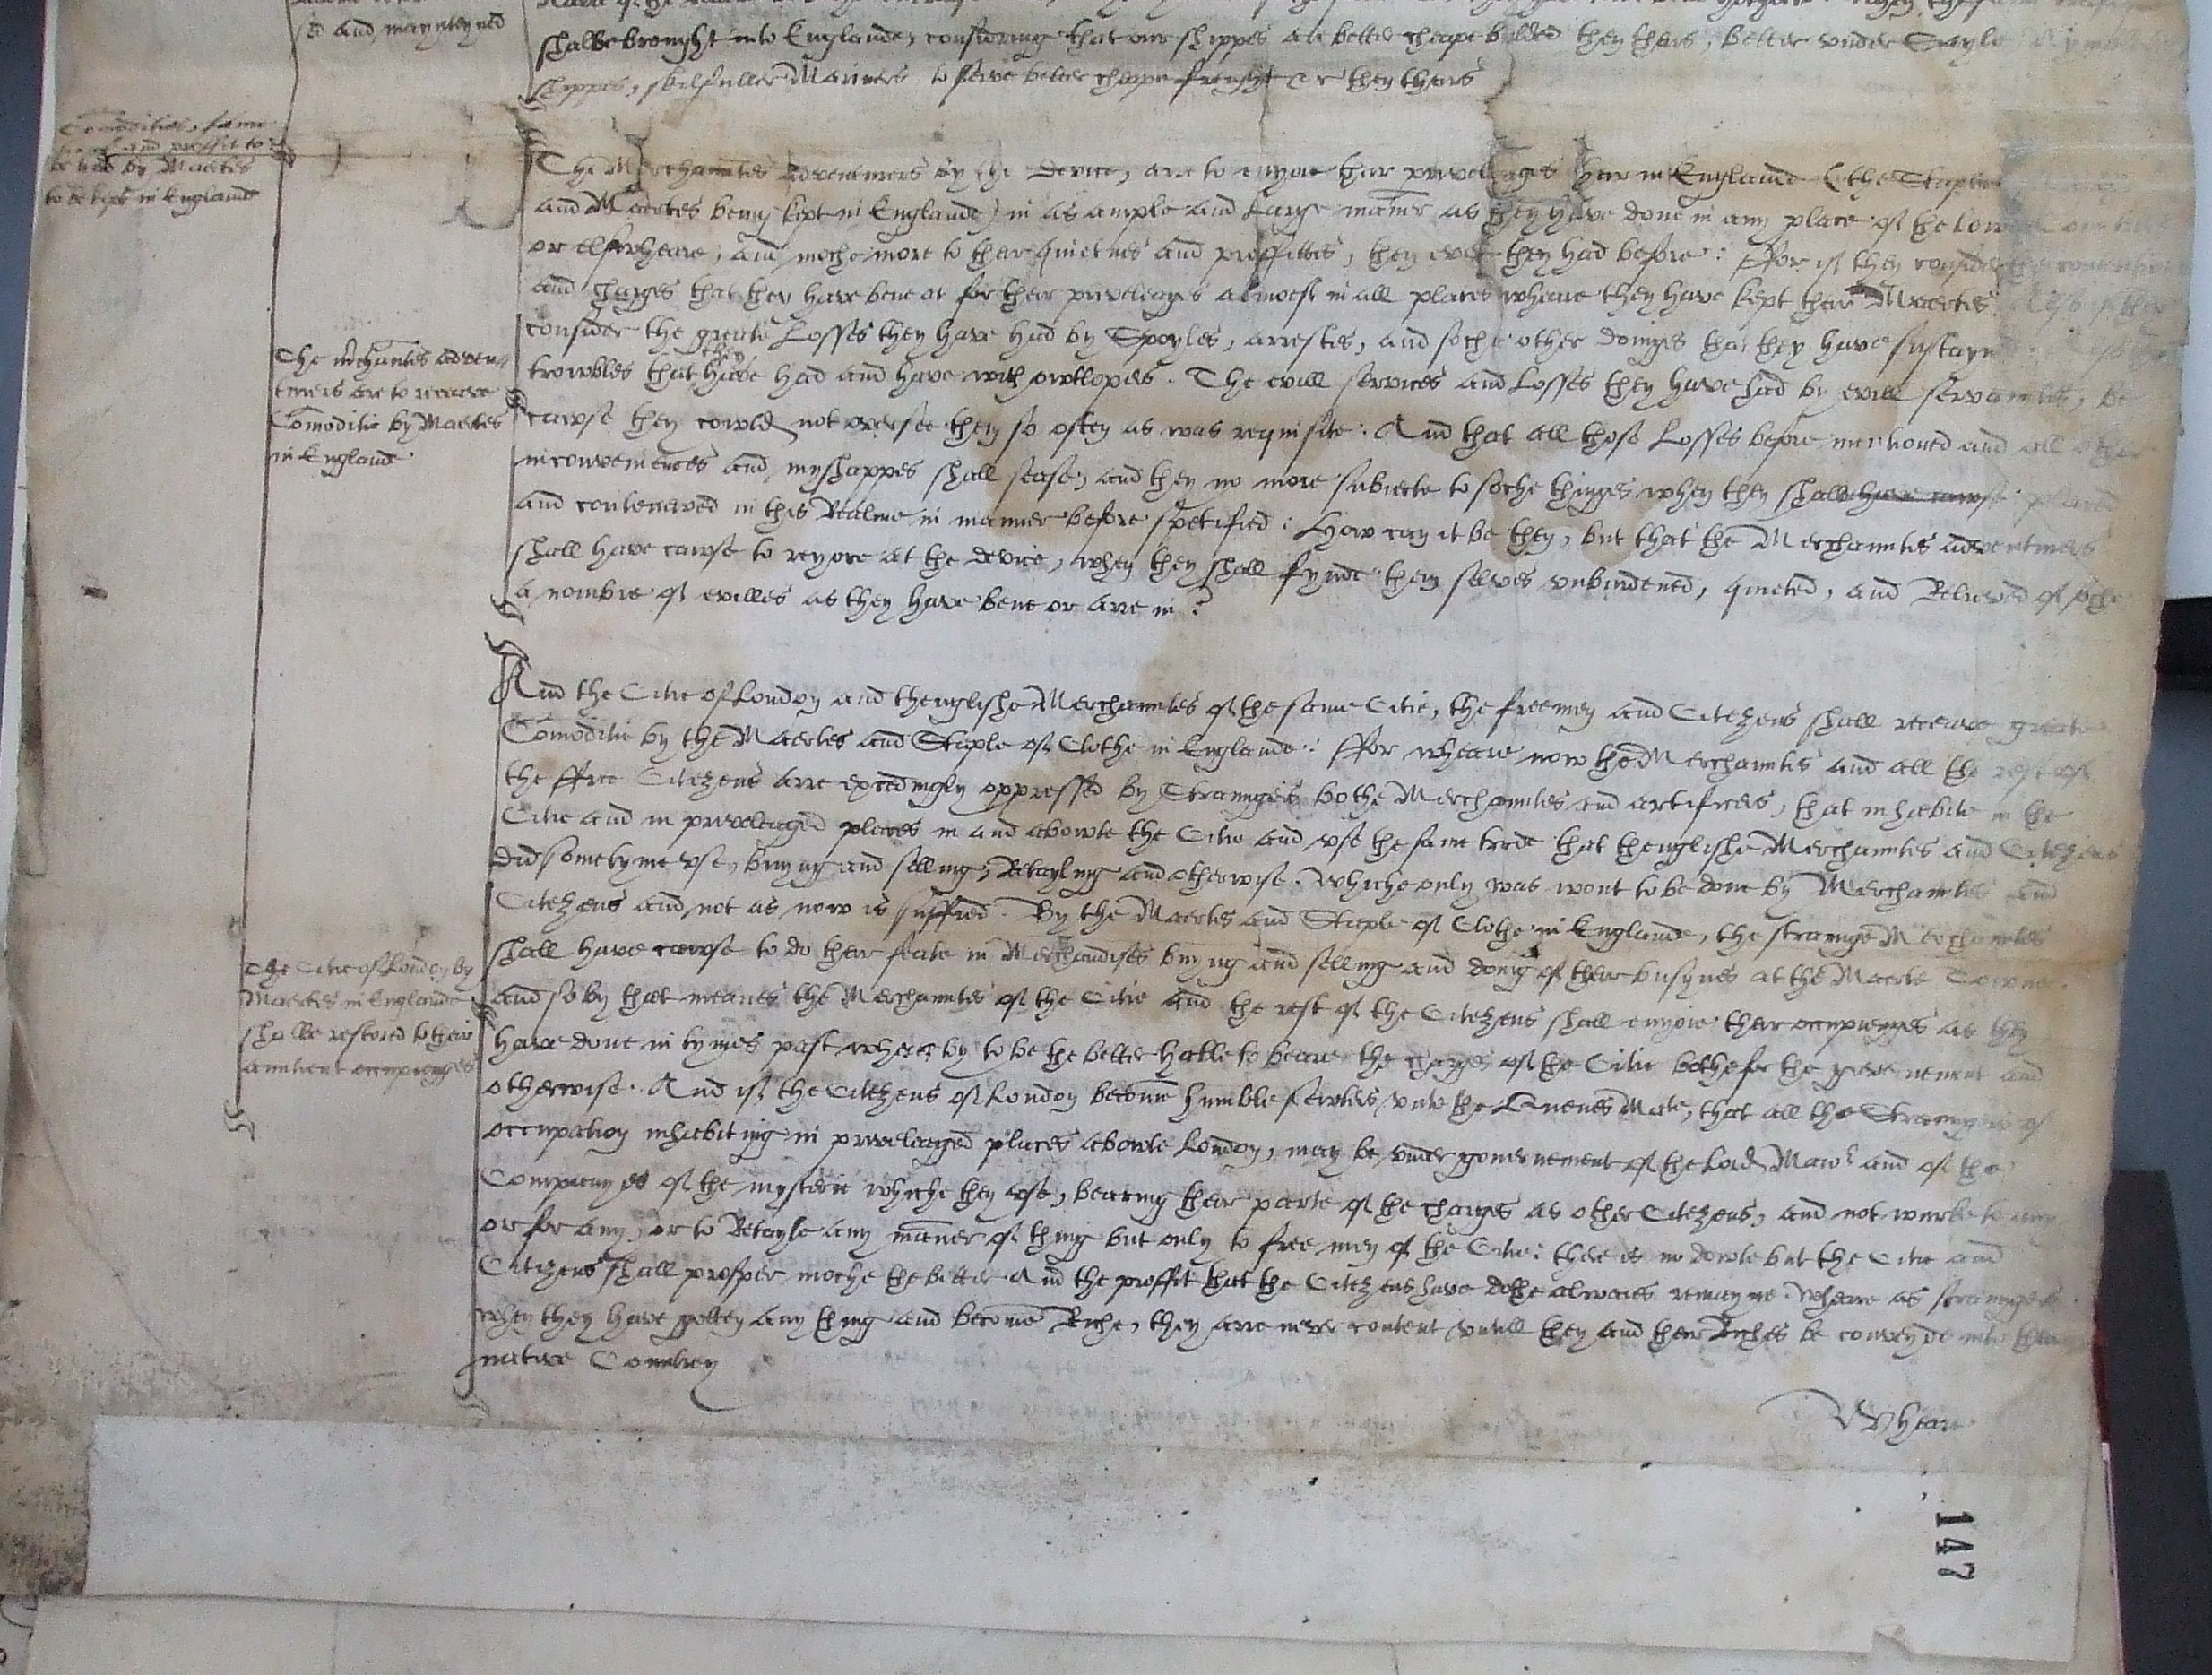 sed and maynteyned
shalbe brought into Englande, considering that our shippes are better cheape bilded then thers, better under Sayle
shippes, skilfuller Mariners to serve better cheape freight &c then thers
Comodities, fame
and proffit to
be had by Maertes
to be kept in Englande
The Merchauntes adventurers by the Device, are to enjoie ther priveleages hear in Englande (the Staples
and Maertes being kept in Englande) in as ample and Large maner as they have done in any place of the Lowe Countries
or elsewheare, and moche more to thear quietnes and proffittes, then ever they had before: ffor if they consider the
and charges that they have bene at for their priveleages almoest in all places wheare they have kept thear Maertes. Also if they
consider the greate Losses they have had by Spoyles, arrestes, and soche other doinges that they have sustayned
trowbles that they have had and have with owtlopers. The evill services and Losses they have had by evill servauntes, be
cawse they cowld not oversee them so often as was requisite: And that all those Losses before mentioned and all other
inconveniences and myshappes shall sease, and they no more subiecte to soche thinges when they shall have cawse placed
and contenewed in this Realme in manner before spetified: How can it be then, but that the Merchauntes adventurers
shall have cawse to rejoice at the device, when they shall fynde them selves unburdened, quieted, and Releived of soche
a nombre of evilles as they have bene or arre in?
The mrchantes adven
turers are to receave
Comoditie by Maertes
in Englande
And the Citie of London and thenglishe Merchauntes of the same Citie, the freemen and Citezens shall receave greate
Comoditie by the Maertes and Staple of Clothe in Englande: ffor wheare now the Merchauntes and all the rest of
the ffree Citezens arre excedingly oppressed by Straungers bothe Merchauntes and artificers, that inhabite in the
Citie and in priveleaged places in and abowte the Citie and use the same trade that thenglishe Merchauntes and Citezens
did sometyme use, buying and selling, Retayling and otherwise. Whiche only was wont to be done by Merchauntes and
Citezens and not as now is suffred. By the Maertes and Staple of Clothe in Englande, the straunge Merchauntes
shall have cawse to do thear feate in Merchandises buying and selling and doing of thear busynes at the Maerte Townes.
And so by that meanes the Merchauntes of the Citie and the rest of the Citezens shall enjoie thear occupienges as they
have done in tymes past wheareby to be the better hable to beare the charges of the Citie bothe for the governement and
otherwise. And if the Citezens of London become humble sewters unto the Quenes Matie, that all the Straungers of
occupation inhabiting in priveleaged places abowte London, may be under governement of the Lord Mawr and of the
Companyes of the mysterie whiche they use, bearing thear parte of the charges as other Citezens, and not worke to any
or for any, or to Retayle any maner of thing but only to free men of the Citie: there is no dowte but the Citie and
Citizens shall prosper moche the better. And the proffit that the Citezens have dothe alwaies remayne. Wheare as straungers
when they have gotten any thing and become Riche, they arre never content untill they and thear Riches be conveyde into thear
native Countrey
The Citie of London by
Maertes in Englande
shalbe restored to their
auntient occupienges
Wheare
147